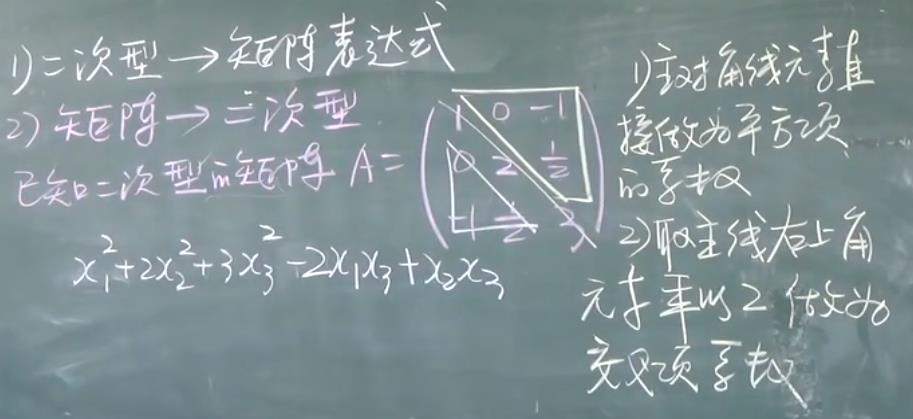 1) 二次型 → 矩阵表达式
2) 矩阵 → 二次型
已知二次型的矩阵 A = ( 1 0 -1
0 2 1/2
-1 1/2 3 )
x₁² + 2x₂² + 3x₃² - 2x₁x₃ + x₂x₃
1) 主对角线元素直
接做为平方项
的系数
2) 取主线右上角
元素乘以2 做为
交叉项系数